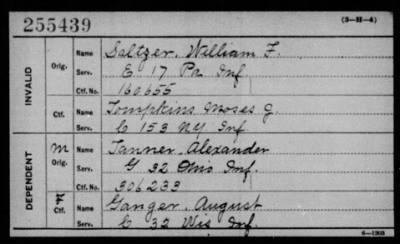 255439 (3-H-4)
INVALID
Orig. Name Saltzer, William F.
Serv. E 17 Pa Inf
Ctf. No. 160655
Ctf. Name Tompkins Moses J.
Serv. C 153 NY Inf
DEPENDENT
M Orig. Name Tanner, Alexander
Serv. G 32 Ohio Inf.
Ctf. No. 306233
F Ctf. Name Ganger, August
Serv. C 32 Wis Inf.